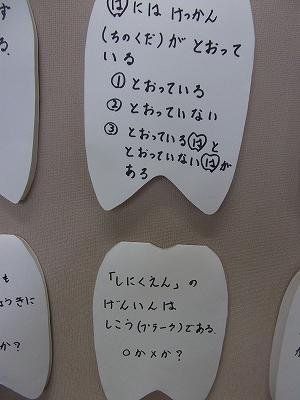 す
る。
(は)には けっかん
(ちのくだ)が とおって
いる
① とおっている
② とおっていない
③ とおっている(は)と
とおっていない(は)が
ある
も
ょうきに
か?
「しにくえん」の
げんいんは
しこう(プラーク)である。
○か×か?